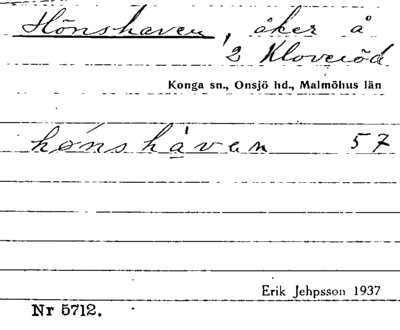 Hönshaven, åker å
2 Kloveröd
Konga sn., Onsjö hd., Malmöhus län
hǿnshàvan 57
Erik Jehpsson 1937
Nr 5712.